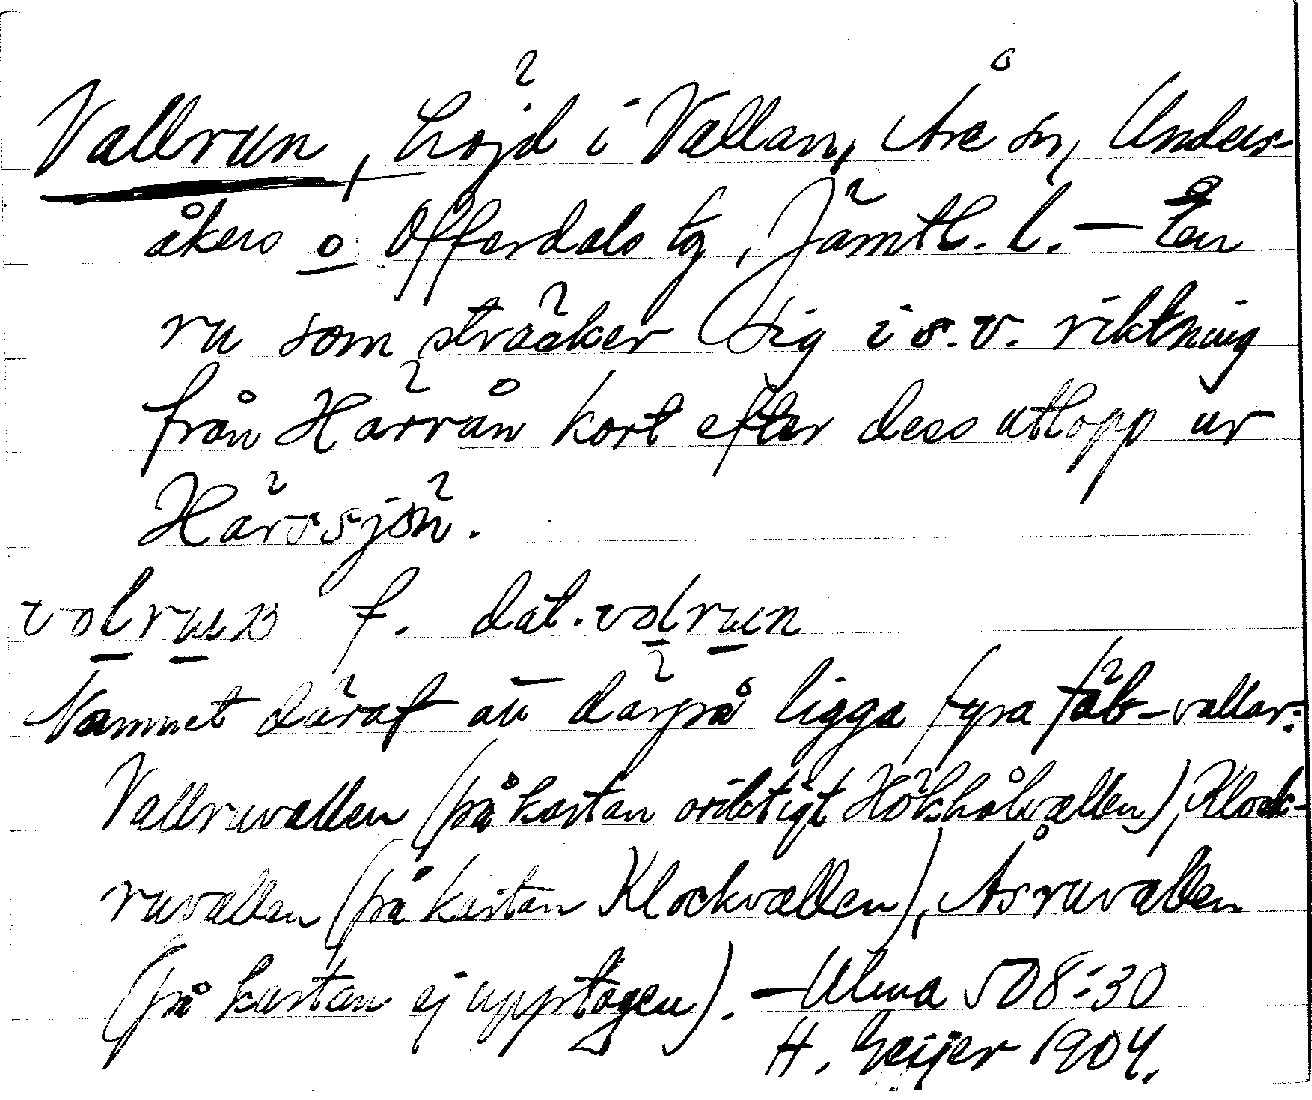 Vallrun, höjd i Vallan, Åre sn, Unders-
åkers o Offerdals tg, Jämtl. l. – En
ru som sträcker sig i s.v. riktning
från Härrån kort efter dess utlopp ur
Härrsjön.
volrun f. dat. volrun
Namnet däraf att därpå ligga fyra fäb-vallar:
Vallruvallen (på kartan oriktigt Hökhålvallen), Klock-
ruvallen (på kartan Klockvallen), Åsruvallen
(på kartan ej upptagen). – Ulma 508:30
H. Geijer 1904.